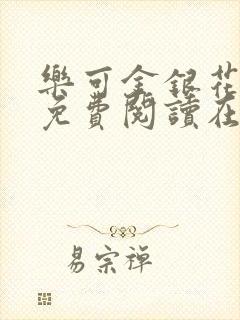 樂可金銀花
免費閱讀在
易宗禪